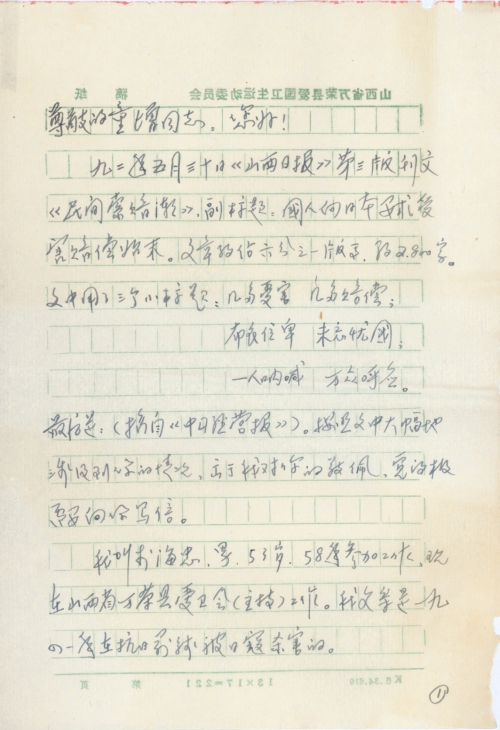 山西省万荣县爱国卫生运动委员会 稿纸
尊敬的童增同志，您好！
九二年五月三十日《山西日报》第三版刊文
《民间索赔潮》，副标题：國人向日本要求受
害赔偿始末。文章约佔六分之一版面，约2800字。
文中用了三个小标题：几多受害 几多赔偿；
布衣位卑 未忘忧國；
一人呐喊 万众呼应。
最后是：（摘自《中日经营报》）。按照文中大幅地
涉及到您的情况，出于我对您的敬佩，觉得很
要向您写信。
我叫 海忠，男，53岁，58年参加工作，现
在山西省万荣县爱卫会（主持）工作。我父亲是一九
四一年在抗日前线被日寇杀害的。
K6.34.010 13×17=221 第 页
①